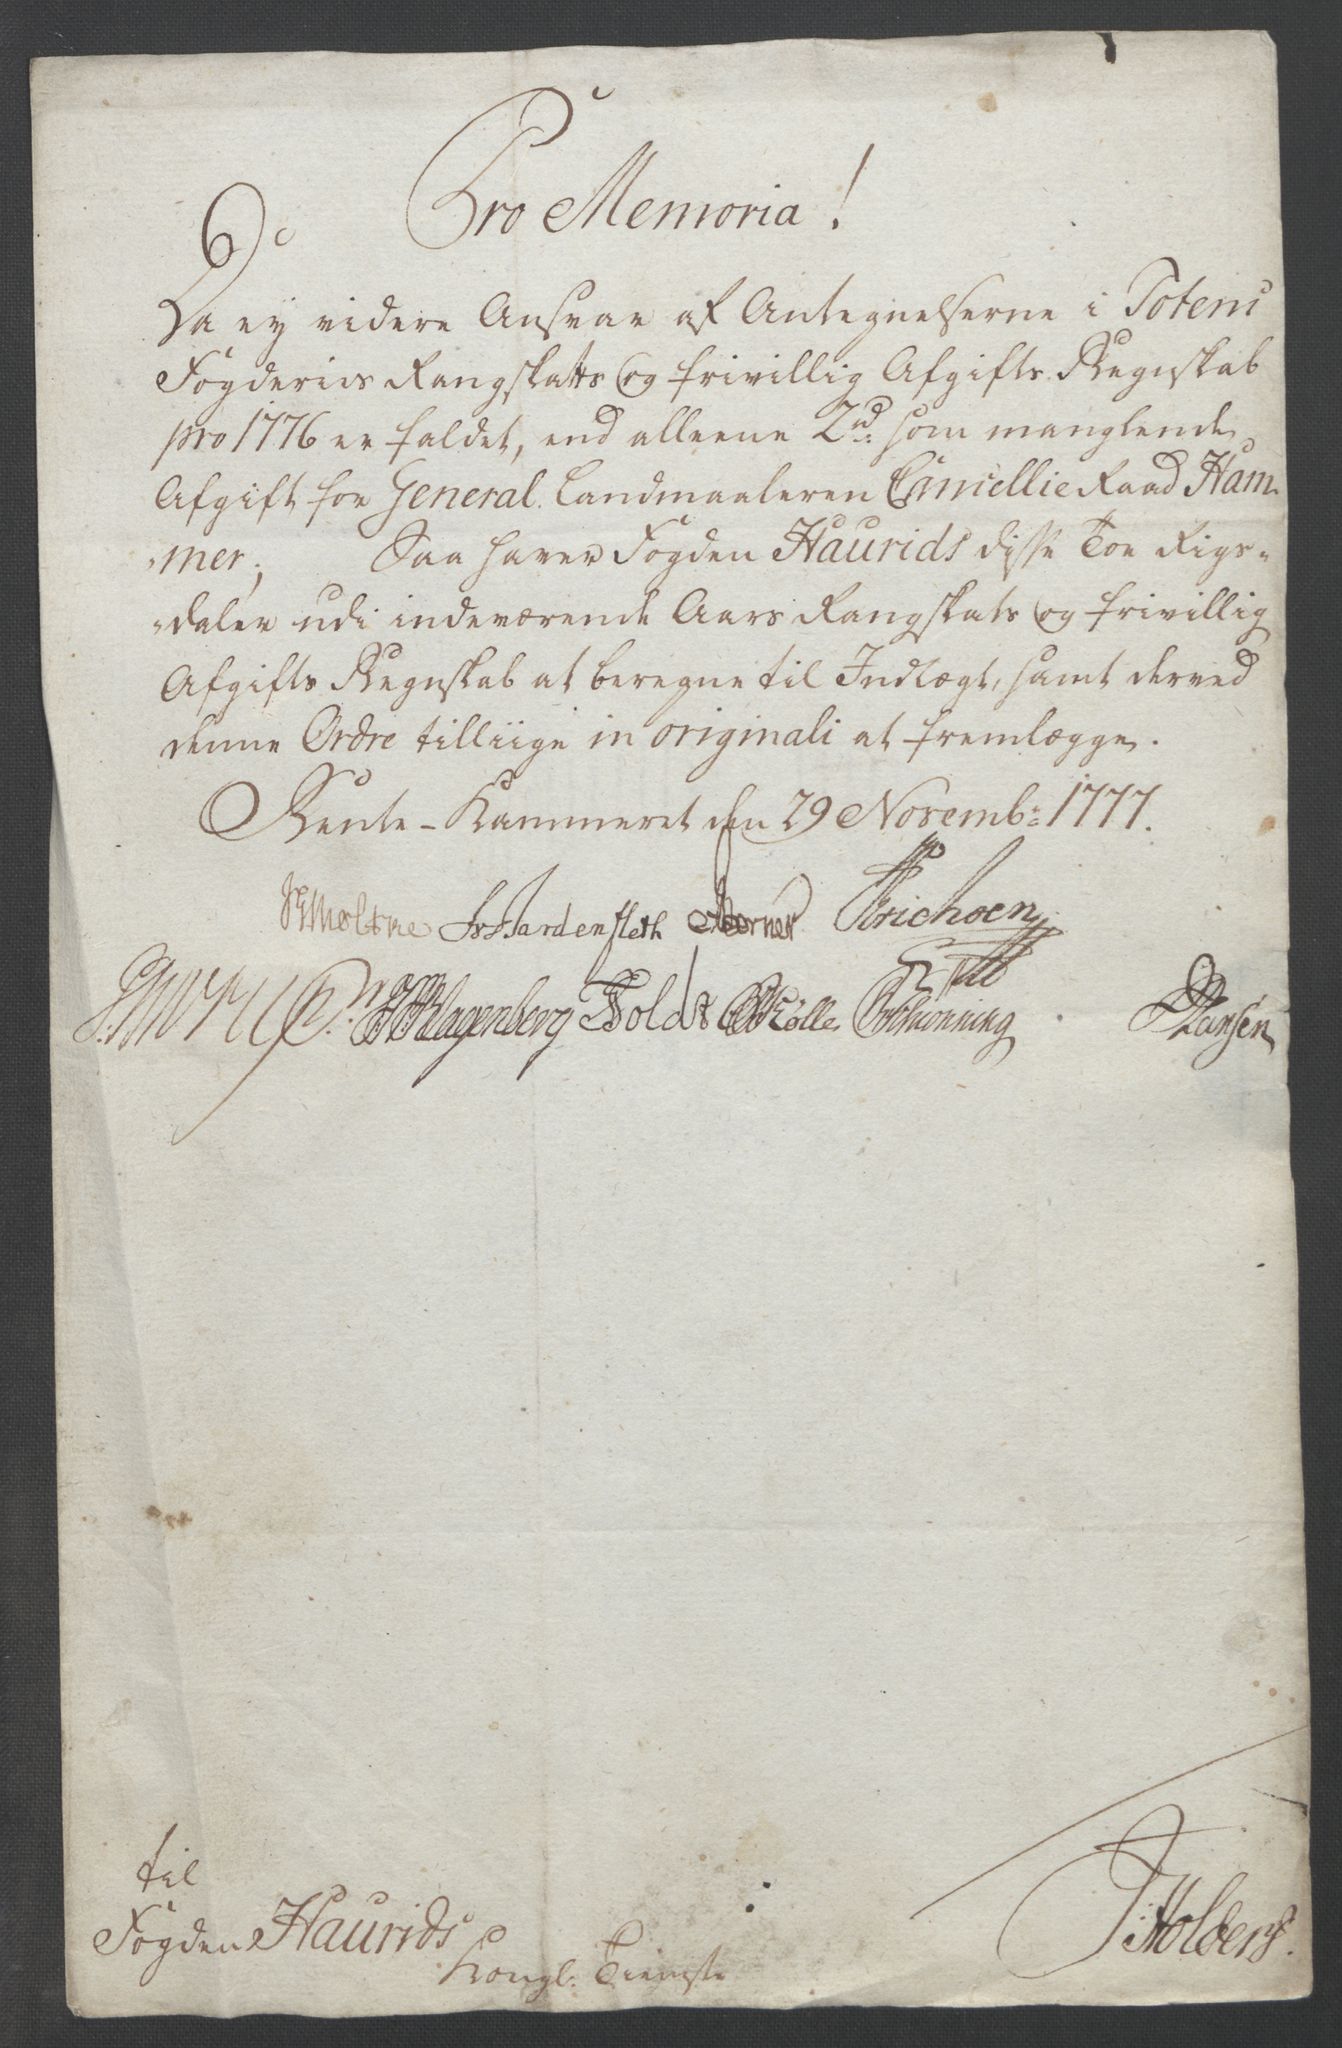 Pro Memoria!
Da ey videre Ansvar af Antegnelserne i Totens
Fogderies Rangskatts og frivillig Afgifts Regnskab
pro 1776 er faldet, end alleene 2 rd: som manglende
Afgift for General Landmaaleren Cancellie Raad Ham-
-mer; Saa haver Fogden Haurids disse Toe Rigs-
-daler udi indeværende Aars Rangskats og frivillig
Afgifts Regnskab at beregne til Indtægt, samt derved
denne Ordre tilliige in originali at fremlægge.
Rente-Kammeret den 29 Novemb: 1777.
Moltke Fr Hardenfleth Berner Erichsen
Klagenberg Toldt Rølle Schionning Hansen
til
Fogden Haurids
Kongl. Tieniste
Holberg.